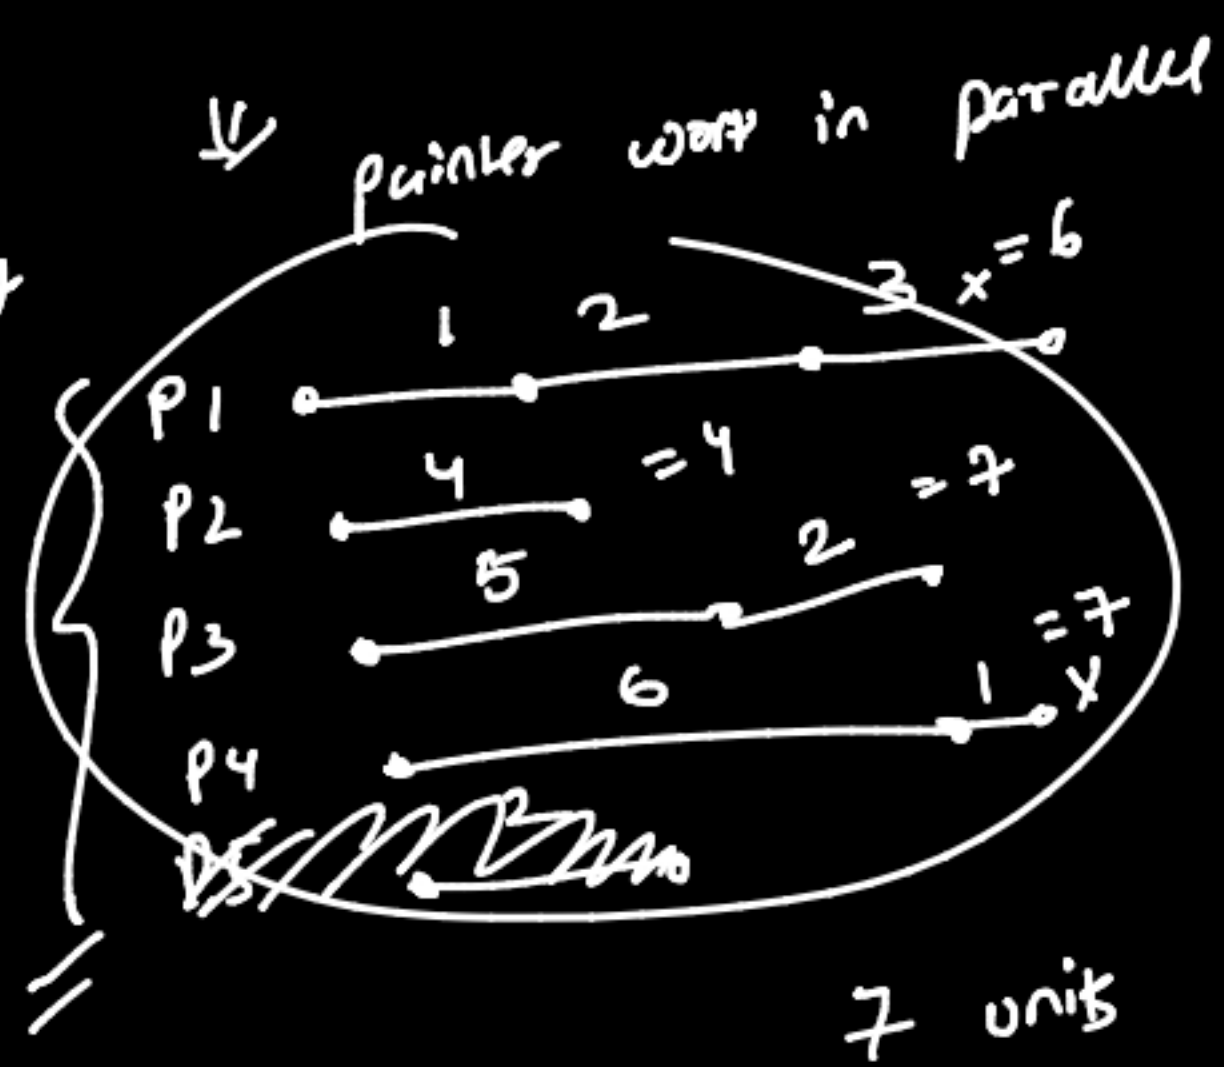 painter work in parallel
1 2 3 x = 6
P1
4 = 4
P2
5 2 = 7
P3
6 1 = 7
P4
7 units